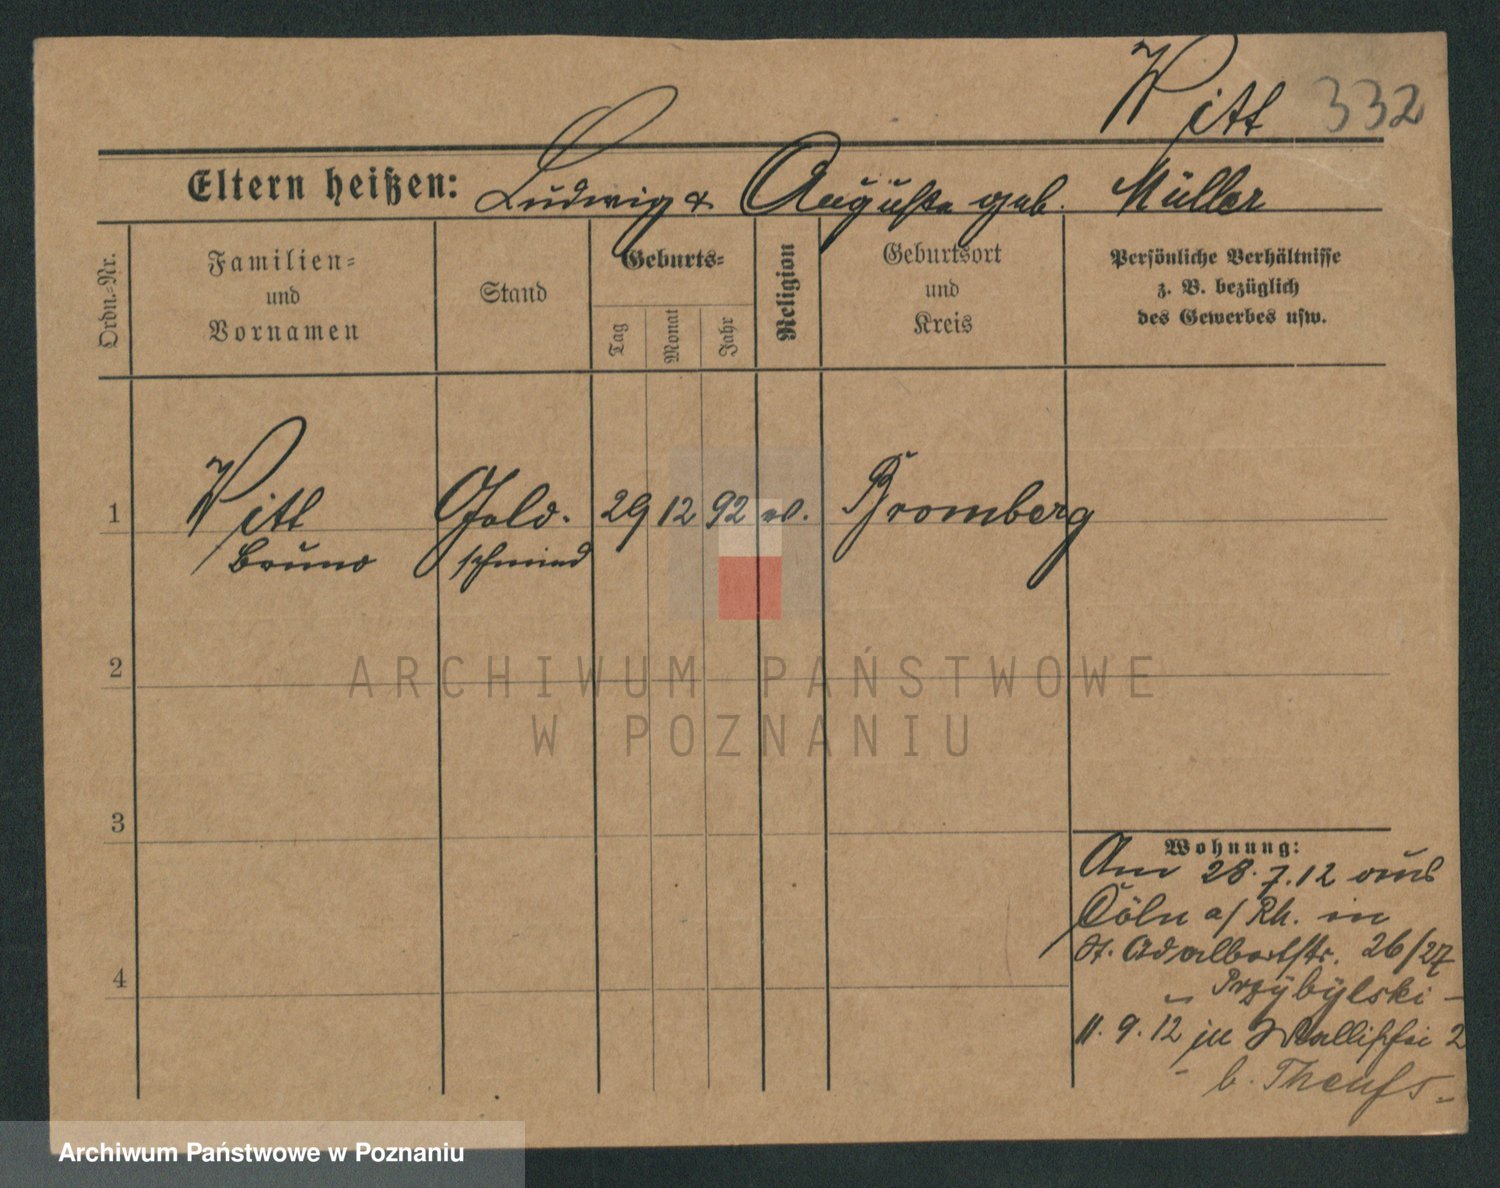 Witt 332
Eltern heißen: Ludwig & Auguste geb. Müller
Ordn.=Nr.
Familien=
und
Vornamen
Stand
Geburts=
Tag
Monat
Jahr
Religion
Geburtsort
und
Kreis
Persönliche Verhältnisse
z. B. bezüglich
des Gewerbes usw.
1 Witt Gold- 29 12 92 ev. Bromberg
Bruno schmied
2
3
4
Wohnung:
Am 28.7.12 aus
Cöln a/Rh. in
St. Adalbertstr. 26/27
Przÿbÿlski -
11.9.12 in 2
b.
ARCHIWUM PAŃSTWOWE
W POZNANIU
Archiwum Państwowe w Poznaniu